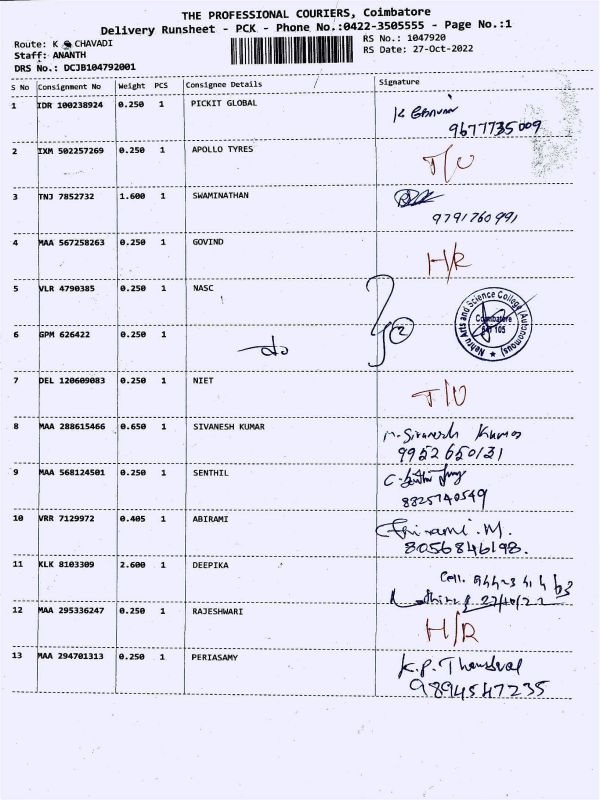 THE PROFESSIONAL COURIERS, Coimbatore
Delivery Runsheet - PCK - Phone No.:0422-3505555 - Page No.:1
Route: K CHAVADI RS No.: 1047920
Staff: ANANTH RS Date: 27-Oct-2022
DRS No.: DCJB104792001
S No Consignment No Weight PCS Consignee Details Signature
1 IDR 100238924 0.250 1 PICKIT GLOBAL
9677735009
2 IXM 502257269 0.250 1 APOLLO TYRES T/U
3 TNJ 7852732 1.600 1 SWAMINATHAN
9791760991
4 MAA 567258263 0.250 1 GOVIND H/R
5 VLR 4790385 0.250 1 NASC
Nehru Arts and Science College (Autonomous)
Coimbatore
641 105
6 GPM 626422 0.250 1 do 2
7 DEL 120609083 0.250 1 NIET T/U
8 MAA 288615466 0.650 1 SIVANESH KUMAR M. Sivanesh Kumar
9952650131
9 MAA 568124501 0.250 1 SENTHIL
8825740549
10 VRR 7129972 0.405 1 ABIRAMI Abirami. M.
8056846198.
11 KLK 8103309 2.600 1 DEEPIKA
27/10/22
12 MAA 295336247 0.250 1 RAJESHWARI H/R
13 MAA 294701313 0.250 1 PERIASAMY K.P.
9894547235